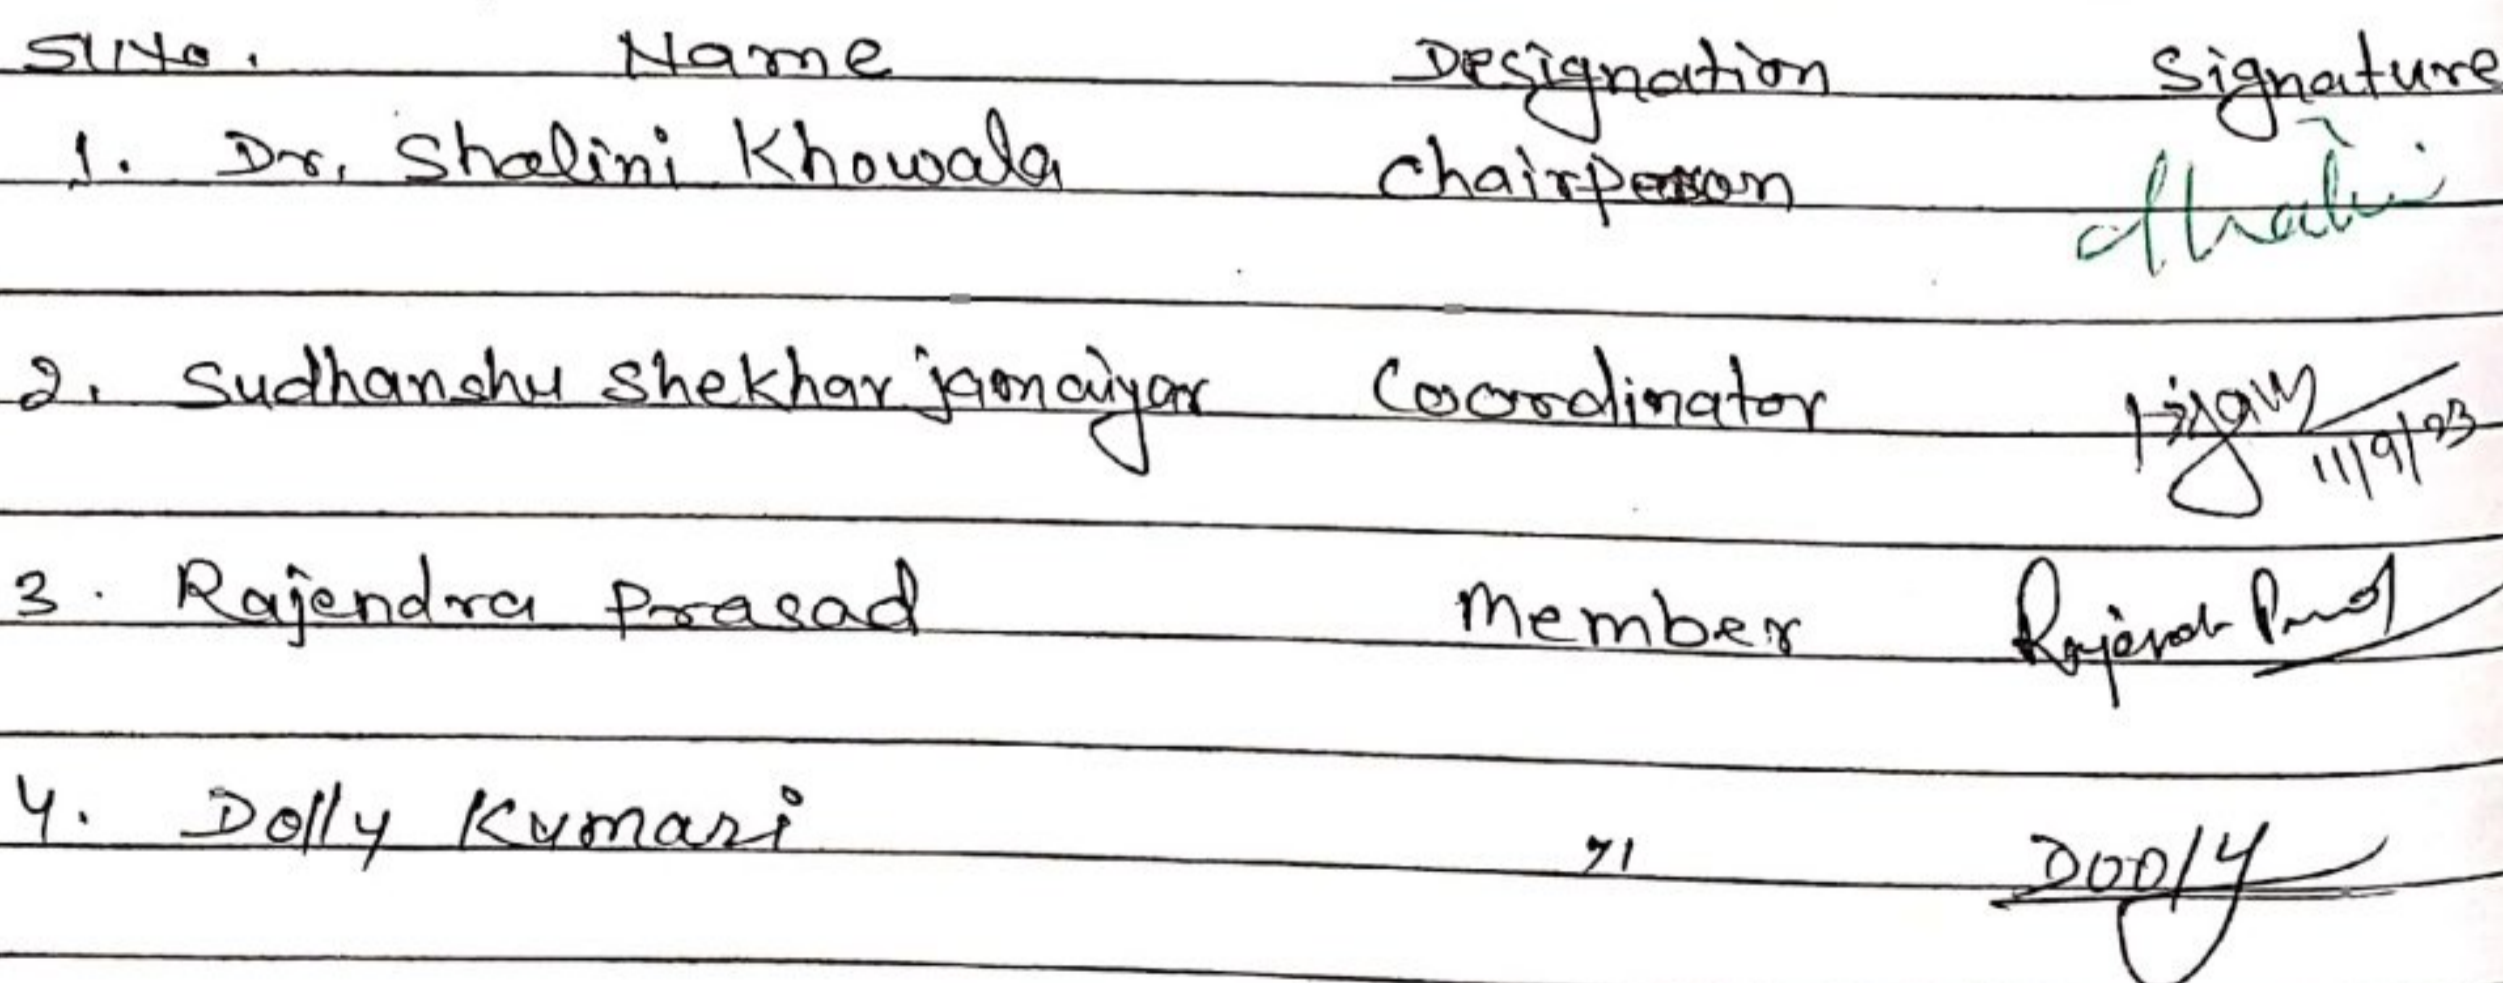 Sl No. Name Designation Signature
1. Dr. Shalini Khowala Chairperson Shalini
2. Sudhanshu Shekhar jamaiyar Coordinator
11/9/23
3. Rajendra Prasad Member Rajendra Prasad
4. Dolly Kumari " Dolly